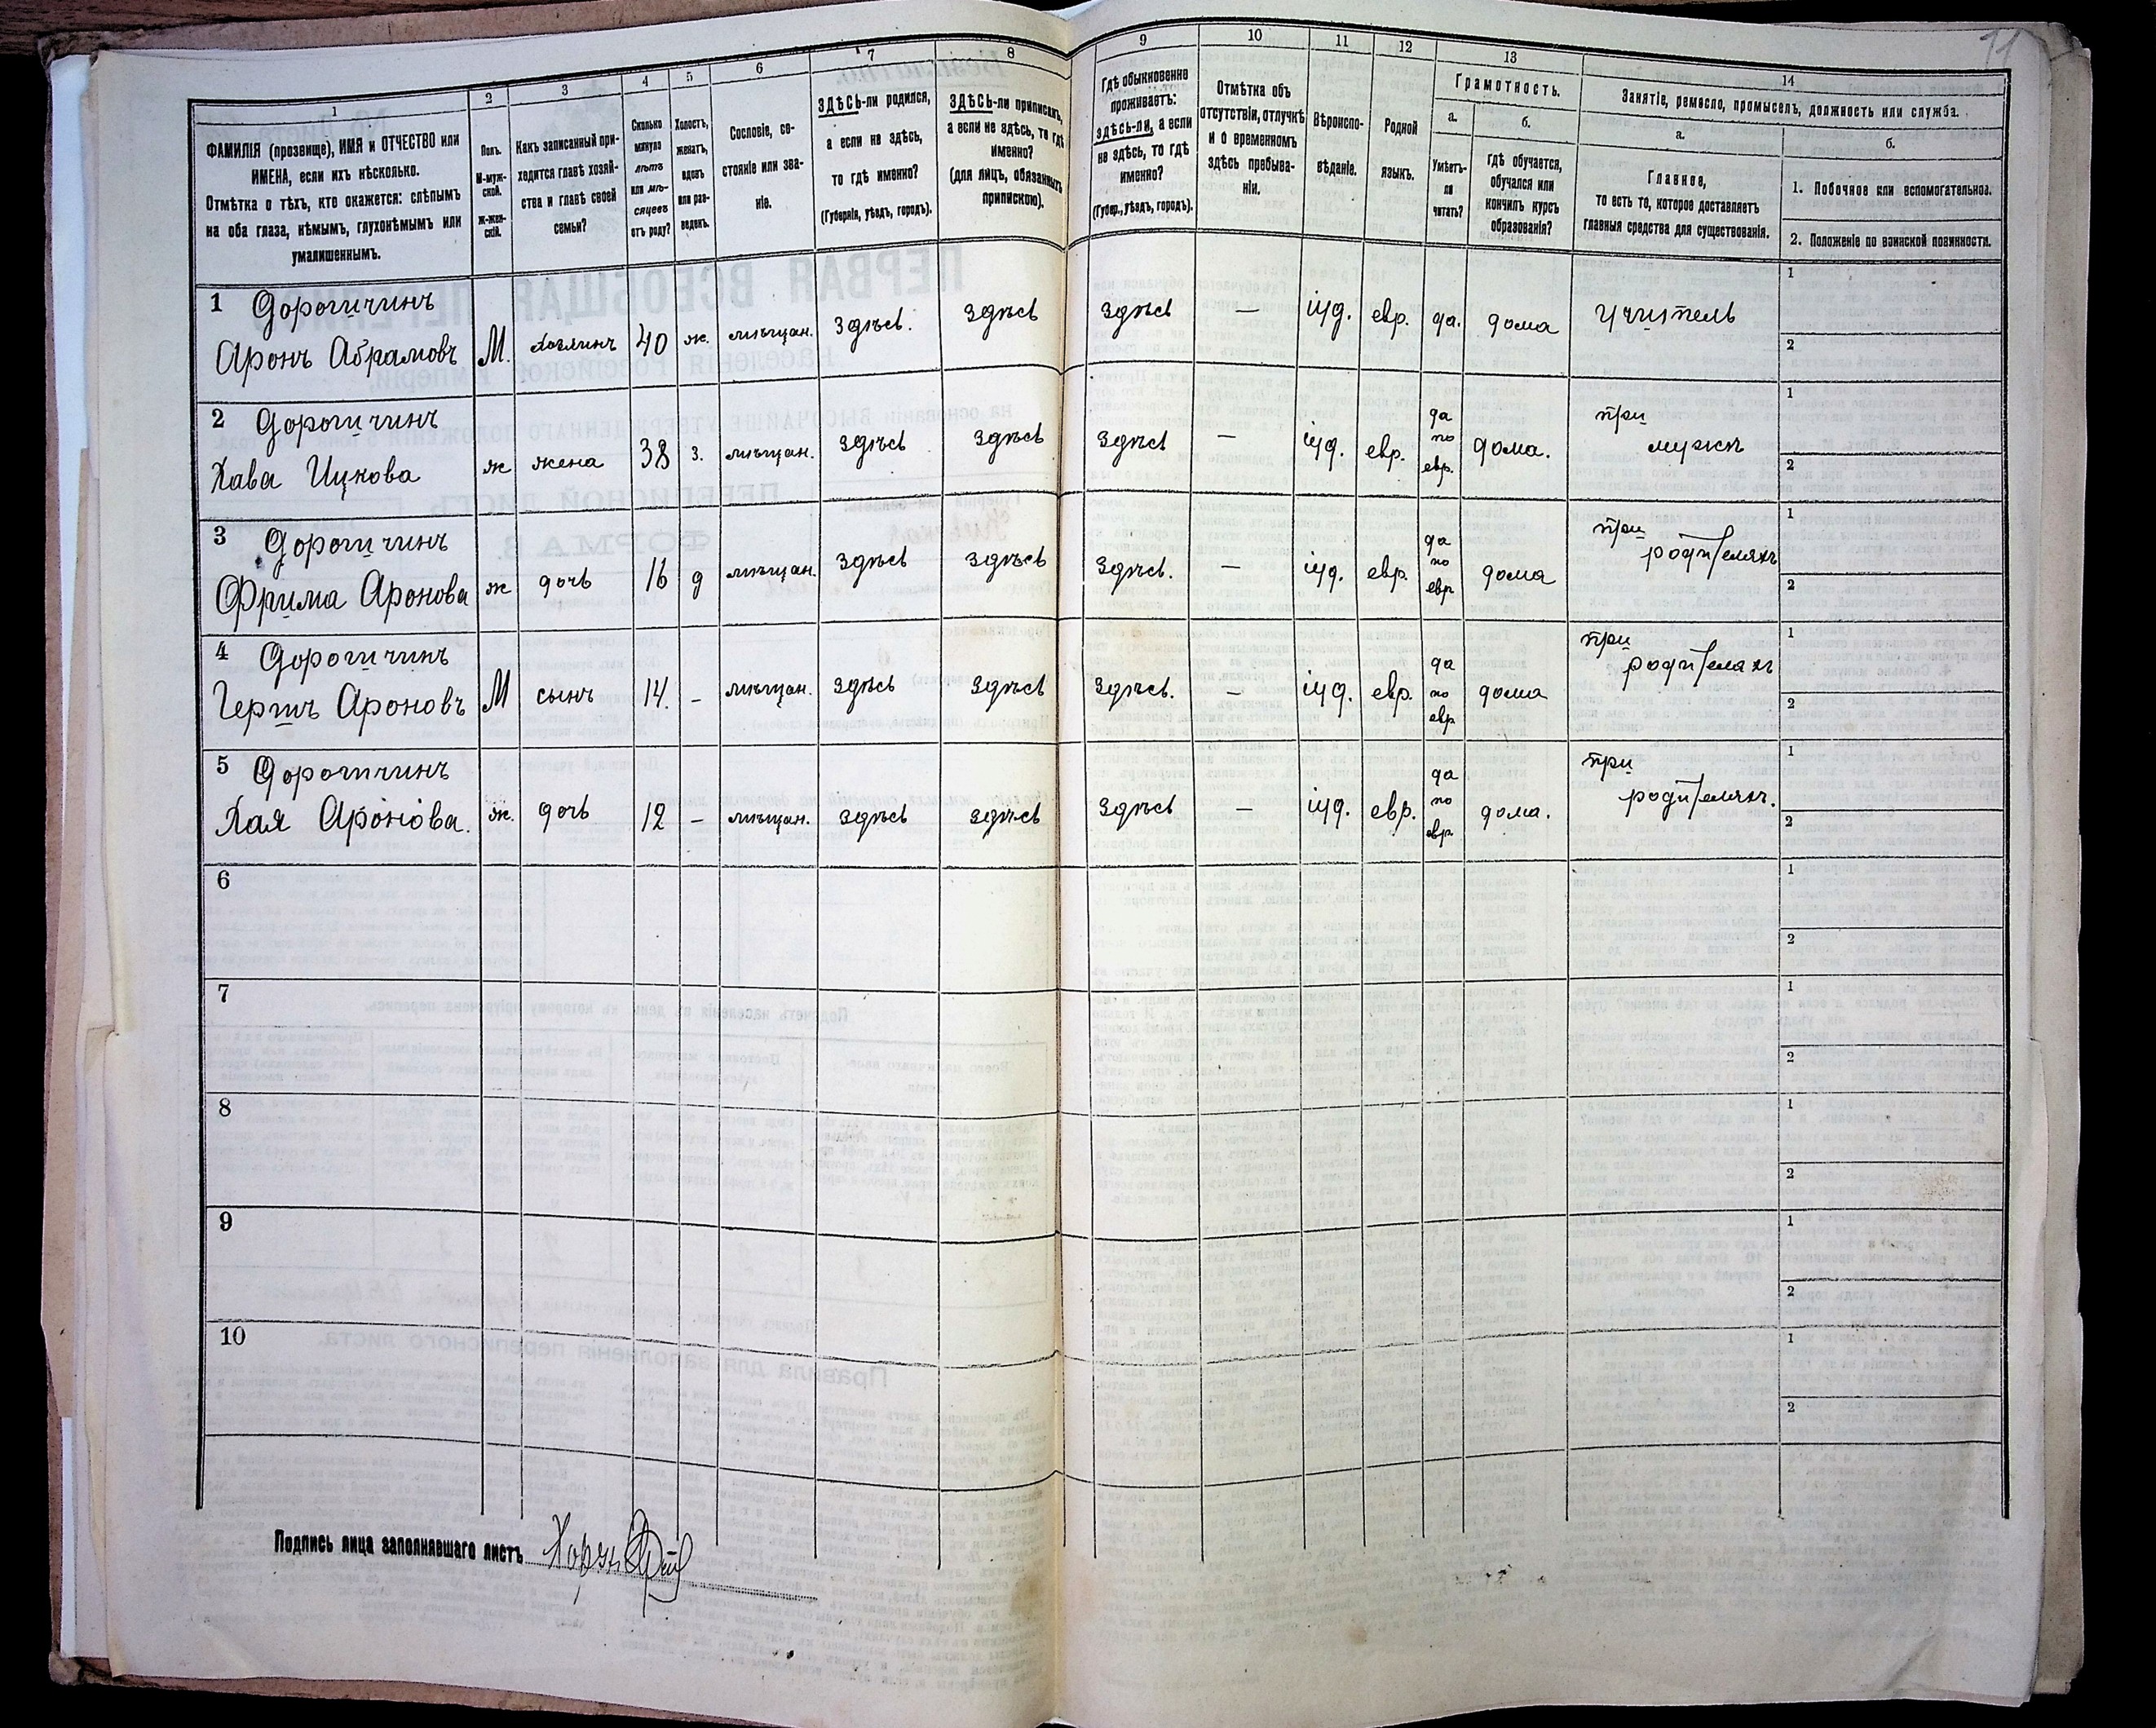 11
1
2
3
4
5
6
7
8
9
10
11
12
13
14
ФАМИЛІЯ (прозвище), ИМЯ и ОТЧЕСТВО или
ИМЕНА, если ихъ нѣсколько.
Отмѣтка о тѣхъ, кто окажется: слѣпымъ
на оба глаза, нѣмымъ, глухонѣмымъ или
умалишеннымъ.
Полъ.
М-муж-
ской.
Ж-жен-
скій.
Какъ записанный при-
ходится главѣ хозяй-
ства и главѣ своей
семьи?
Сколько
минуло
лѣтъ
или мѣ-
сяцевъ
отъ роду?
Холостъ,
женатъ,
вдовъ
или раз-
веденъ.
Сословіе, со-
стояніе или зва-
ніе.
ЗДѢСЬ-ли родился,
а если не здѣсь,
то гдѣ именно?
(Губернія, уѣздъ, городъ).
ЗДѢСЬ-ли приписанъ,
а если не здѣсь, то гдѣ
именно?
(для лицъ, обязанныхъ
припискою).
Гдѣ обыкновенно
проживаетъ:
здѣсь-ли, а если
не здѣсь, то гдѣ
именно?
(Губер., уѣздъ, городъ).
Отмѣтка объ
отсутствіи, отлучкѣ
и о временномъ
здѣсь пребыва-
ніи.
Вѣроиспо-
вѣданіе.
Родной
языкъ.
Грамотность.
а.
Умѣетъ-
ли
читать?
б.
Гдѣ обучается,
обучался или
кончилъ курсъ
образованія?
Занятіе, ремесло, промыселъ, должность или служба.
а.
Главное,
то есть то, которое доставляетъ
главныя средства для существованія.
б.
1. Побочное или вспомогательное.
2. Положеніе по воинской повинности.
1 Дорогичинъ
Аронъ Абрамовъ М. хозяинъ 40 ж. мѣщан. Здѣсь. здѣсь здѣсь — іуд. евр. да. дома учитель
1
2
2 Дорогичинъ
Хава Ицкова ж жена 38 з. мѣщан. здѣсь здѣсь здѣсь — іуд. евр. да по евр. дома. при мужѣ
1
2
3 Дорогичинъ
Фрима Аронова ж дочь 16 д мѣщан. здѣсь здѣсь здѣсь. — іуд. евр. да по евр дома при родителяхъ
1
2
4 Дорогичинъ
Гершъ Ароновъ М сынъ 14. - мѣщан. здѣсь здѣсь здѣсь. — іуд. евр. да по евр дома при родителяхъ
1
2
5 Дорогичинъ
Хая Аронова. ж. дочь 12 - мѣщан. здѣсь здѣсь здѣсь — іуд. евр. да по евр. дома. при родителяхъ.
1
2
6
1
2
7
1
2
8
1
2
9
1
2
10
1
2
Подпись лица заполнявшаго листъ